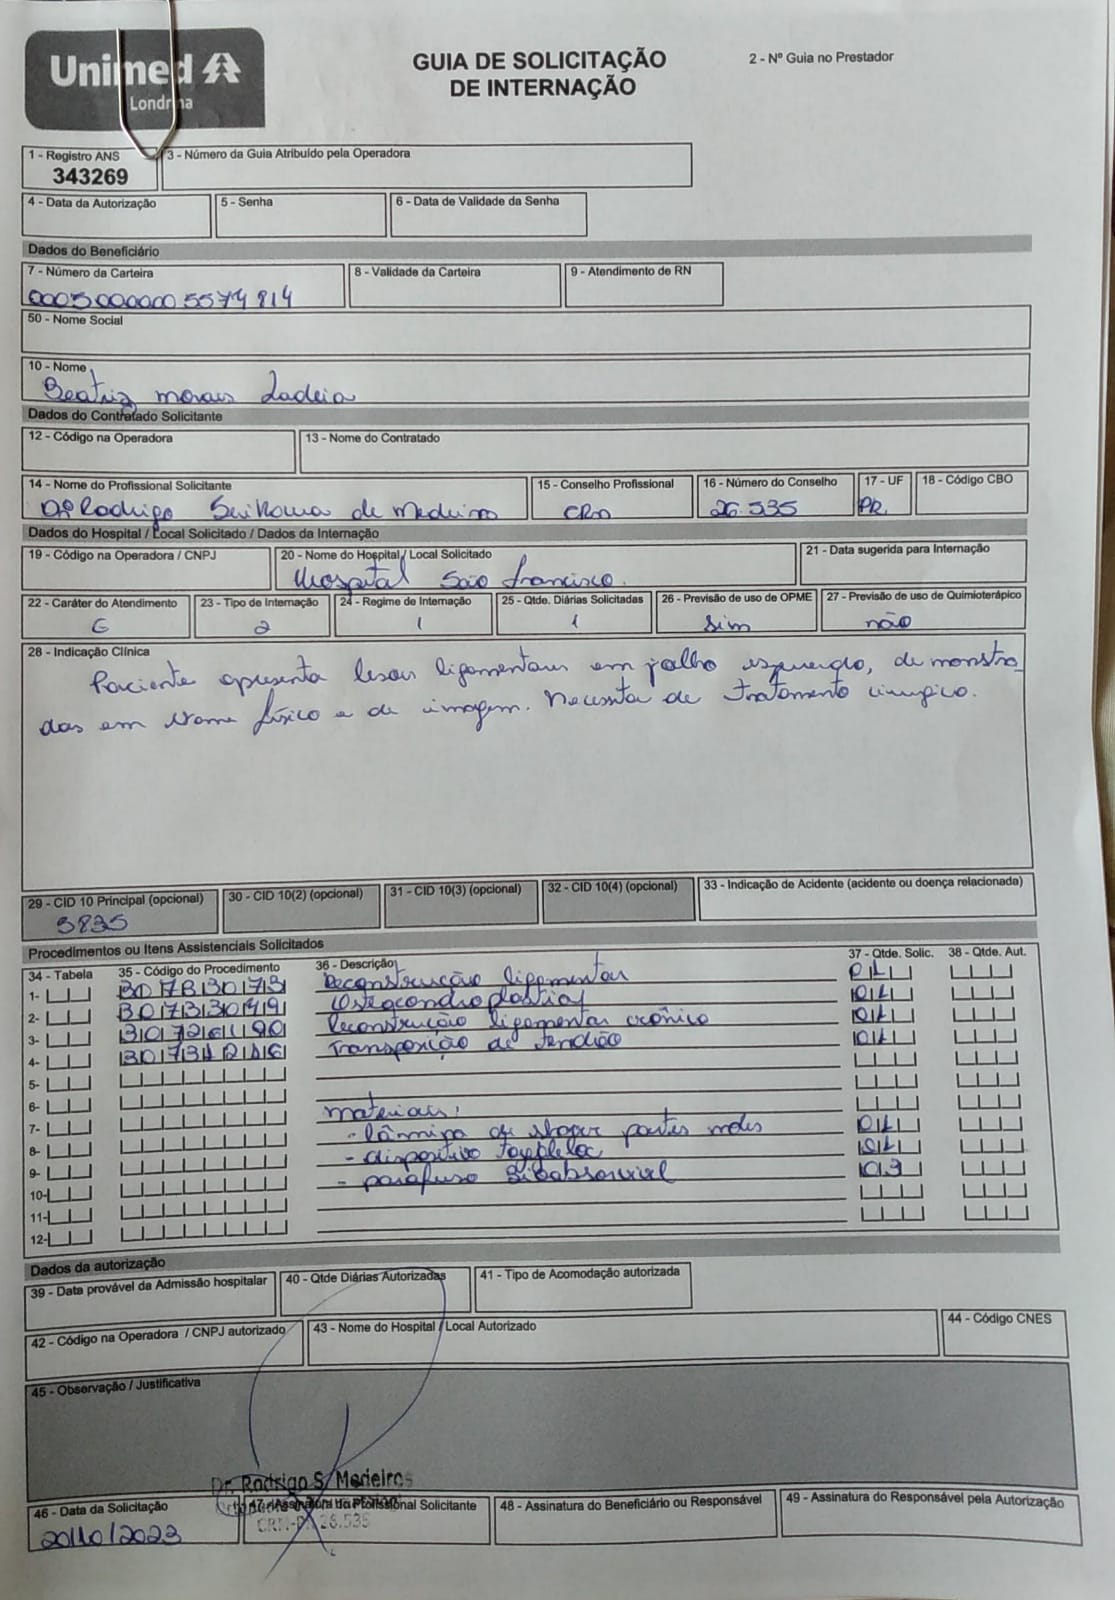 Unimed
Londrina
GUIA DE SOLICITAÇÃO
DE INTERNAÇÃO
2 - Nº Guia no Prestador
1 - Registro ANS
343269
3 - Número da Guia Atribuído pela Operadora
4 - Data da Autorização
5 - Senha
6 - Data de Validade da Senha
Dados do Beneficiário
7 - Número da Carteira
8 - Validade da Carteira
9 - Atendimento de RN
50 - Nome Social
10 - Nome
Beatriz morais Ladeia
Dados do Contratado Solicitante
12 - Código na Operadora
13 - Nome do Contratado
14 - Nome do Profissional Solicitante
15 - Conselho Profissional
16 - Número do Conselho
17 - UF
18 - Código CBO
Rodrigo de
CRM
26.535
PR
Dados do Hospital / Local Solicitado / Dados da Internação
19 - Código na Operadora / CNPJ
20 - Nome do Hospital / Local Solicitado
21 - Data sugerida para Internação
Hospital São Francisco.
22 - Caráter do Atendimento
23 - Tipo de Internação
24 - Regime de Internação
25 - Qtde. Diárias Solicitadas
26 - Previsão de uso de OPME
27 - Previsão de uso de Quimioterápico
2
1
1
sim
não
28 - Indicação Clínica
Paciente apresenta ligamentares em joelho esquerdo, demonstra
das em físico e de imagem. Necessita de tratamento cirúrgico.
29 - CID 10 Principal (opcional)
30 - CID 10(2) (opcional)
31 - CID 10(3) (opcional)
32 - CID 10(4) (opcional)
33 - Indicação de Acidente (acidente ou doença relacionada)
S835
Procedimentos ou Itens Assistenciais Solicitados
34 - Tabela
35 - Código do Procedimento
36 - Descrição
37 - Qtde. Solic.
38 - Qtde. Aut.
1- Reconstrução ligamentar 01
2- Osteocondroplastia 01
3- Reconstrução ligamentar crônico 01
4- Transposição de tendão 01
5-
6-
7- materiais:
8- - lâmina de shaver partes moles 01
9- - dispositivo 01
10- - parafuso 03
11-
12-
Dados da autorização
39 - Data provável da Admissão hospitalar
40 - Qtde Diárias Autorizadas
41 - Tipo de Acomodação autorizada
42 - Código na Operadora / CNPJ autorizado
43 - Nome do Hospital / Local Autorizado
44 - Código CNES
45 - Observação / Justificativa
Dr. Rodrigo S. Medeiros
46 - Data da Solicitação
47 - Assinatura do Profissional Solicitante
48 - Assinatura do Beneficiário ou Responsável
49 - Assinatura do Responsável pela Autorização
20/10/2023